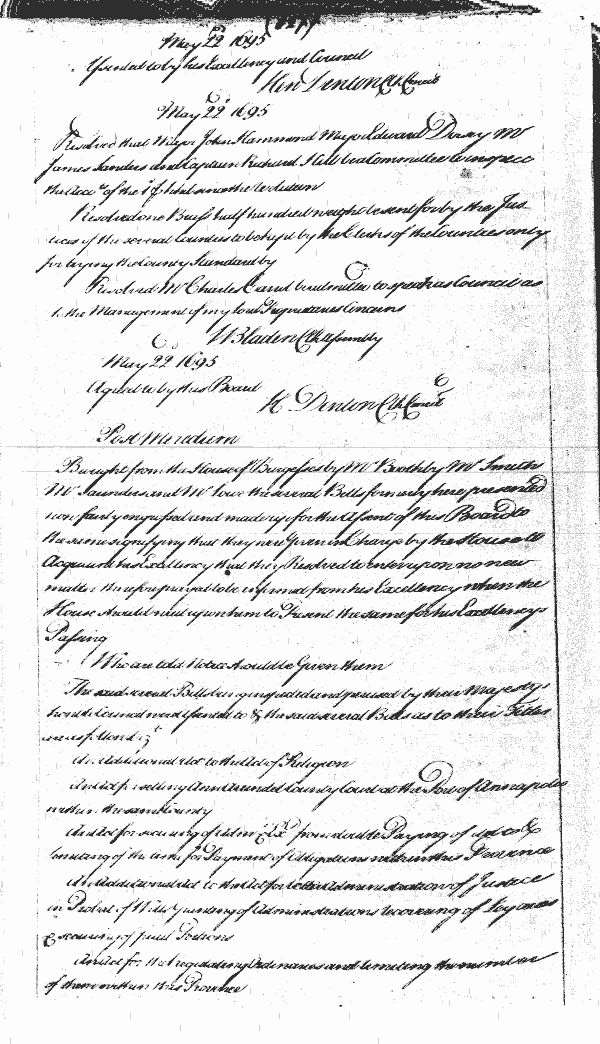 May 22 1695
Assented to by his Excellency and Council
Hen Denton Clk Council
May 22d 1695
Resolved that Major John Hammond Major Edward Dorsey Mr
James Sanders and Captain Richard Hill be a Committee to inspect
the of the
Resolved one Brass half hundred weight be sent for by the Jus
tices of the several Counties to be kept by the Clerks of the Counties only
for trying the County Standard by
Resolved Mr Charles Carroll be admitted to speak as Council as
to the Management of my Lords Concerns
W Bladen Clk Assembly
May 22 1695
Agreed to by this Board
H Denton Clk Council
Post Meridiem
Brought from the House of Burgesses by Mr Boothby Mr Smith
Mr Saunders and Mr the several Bills formerly here presented
now fairly engrossed and made up for the Assent of this Board to
the same signifying that they were Given in Charge by the House to
Acquaint his Excellency that they Resolved to enter upon no new
matter therefore prayed to be informed from his Excellency when the
House should wait upon him to Present the same for his Excellencys
Passing
Who are told Notice should be Given them
The said several Bills being read and perused by their Majestys
honble Council were Assented to & the said several Bills as to their Titles
are as followeth vizt
An Additional Act to the Act of Religion
An Act for selling Ann Arundel County Court at the Port of Annapolis
within the same County
An Act for securing of Admrs & Exrs from double Paying of debts &
limiting of the time for Payment of Obligations within this Province
An Additional Act to the Act for better Administration of Justice
in Probat of Wills granting of Administrations recovering of Legacies
& securing of filial Portions
An Act for the regulating Ordinaries and limiting the number
of them within this Province